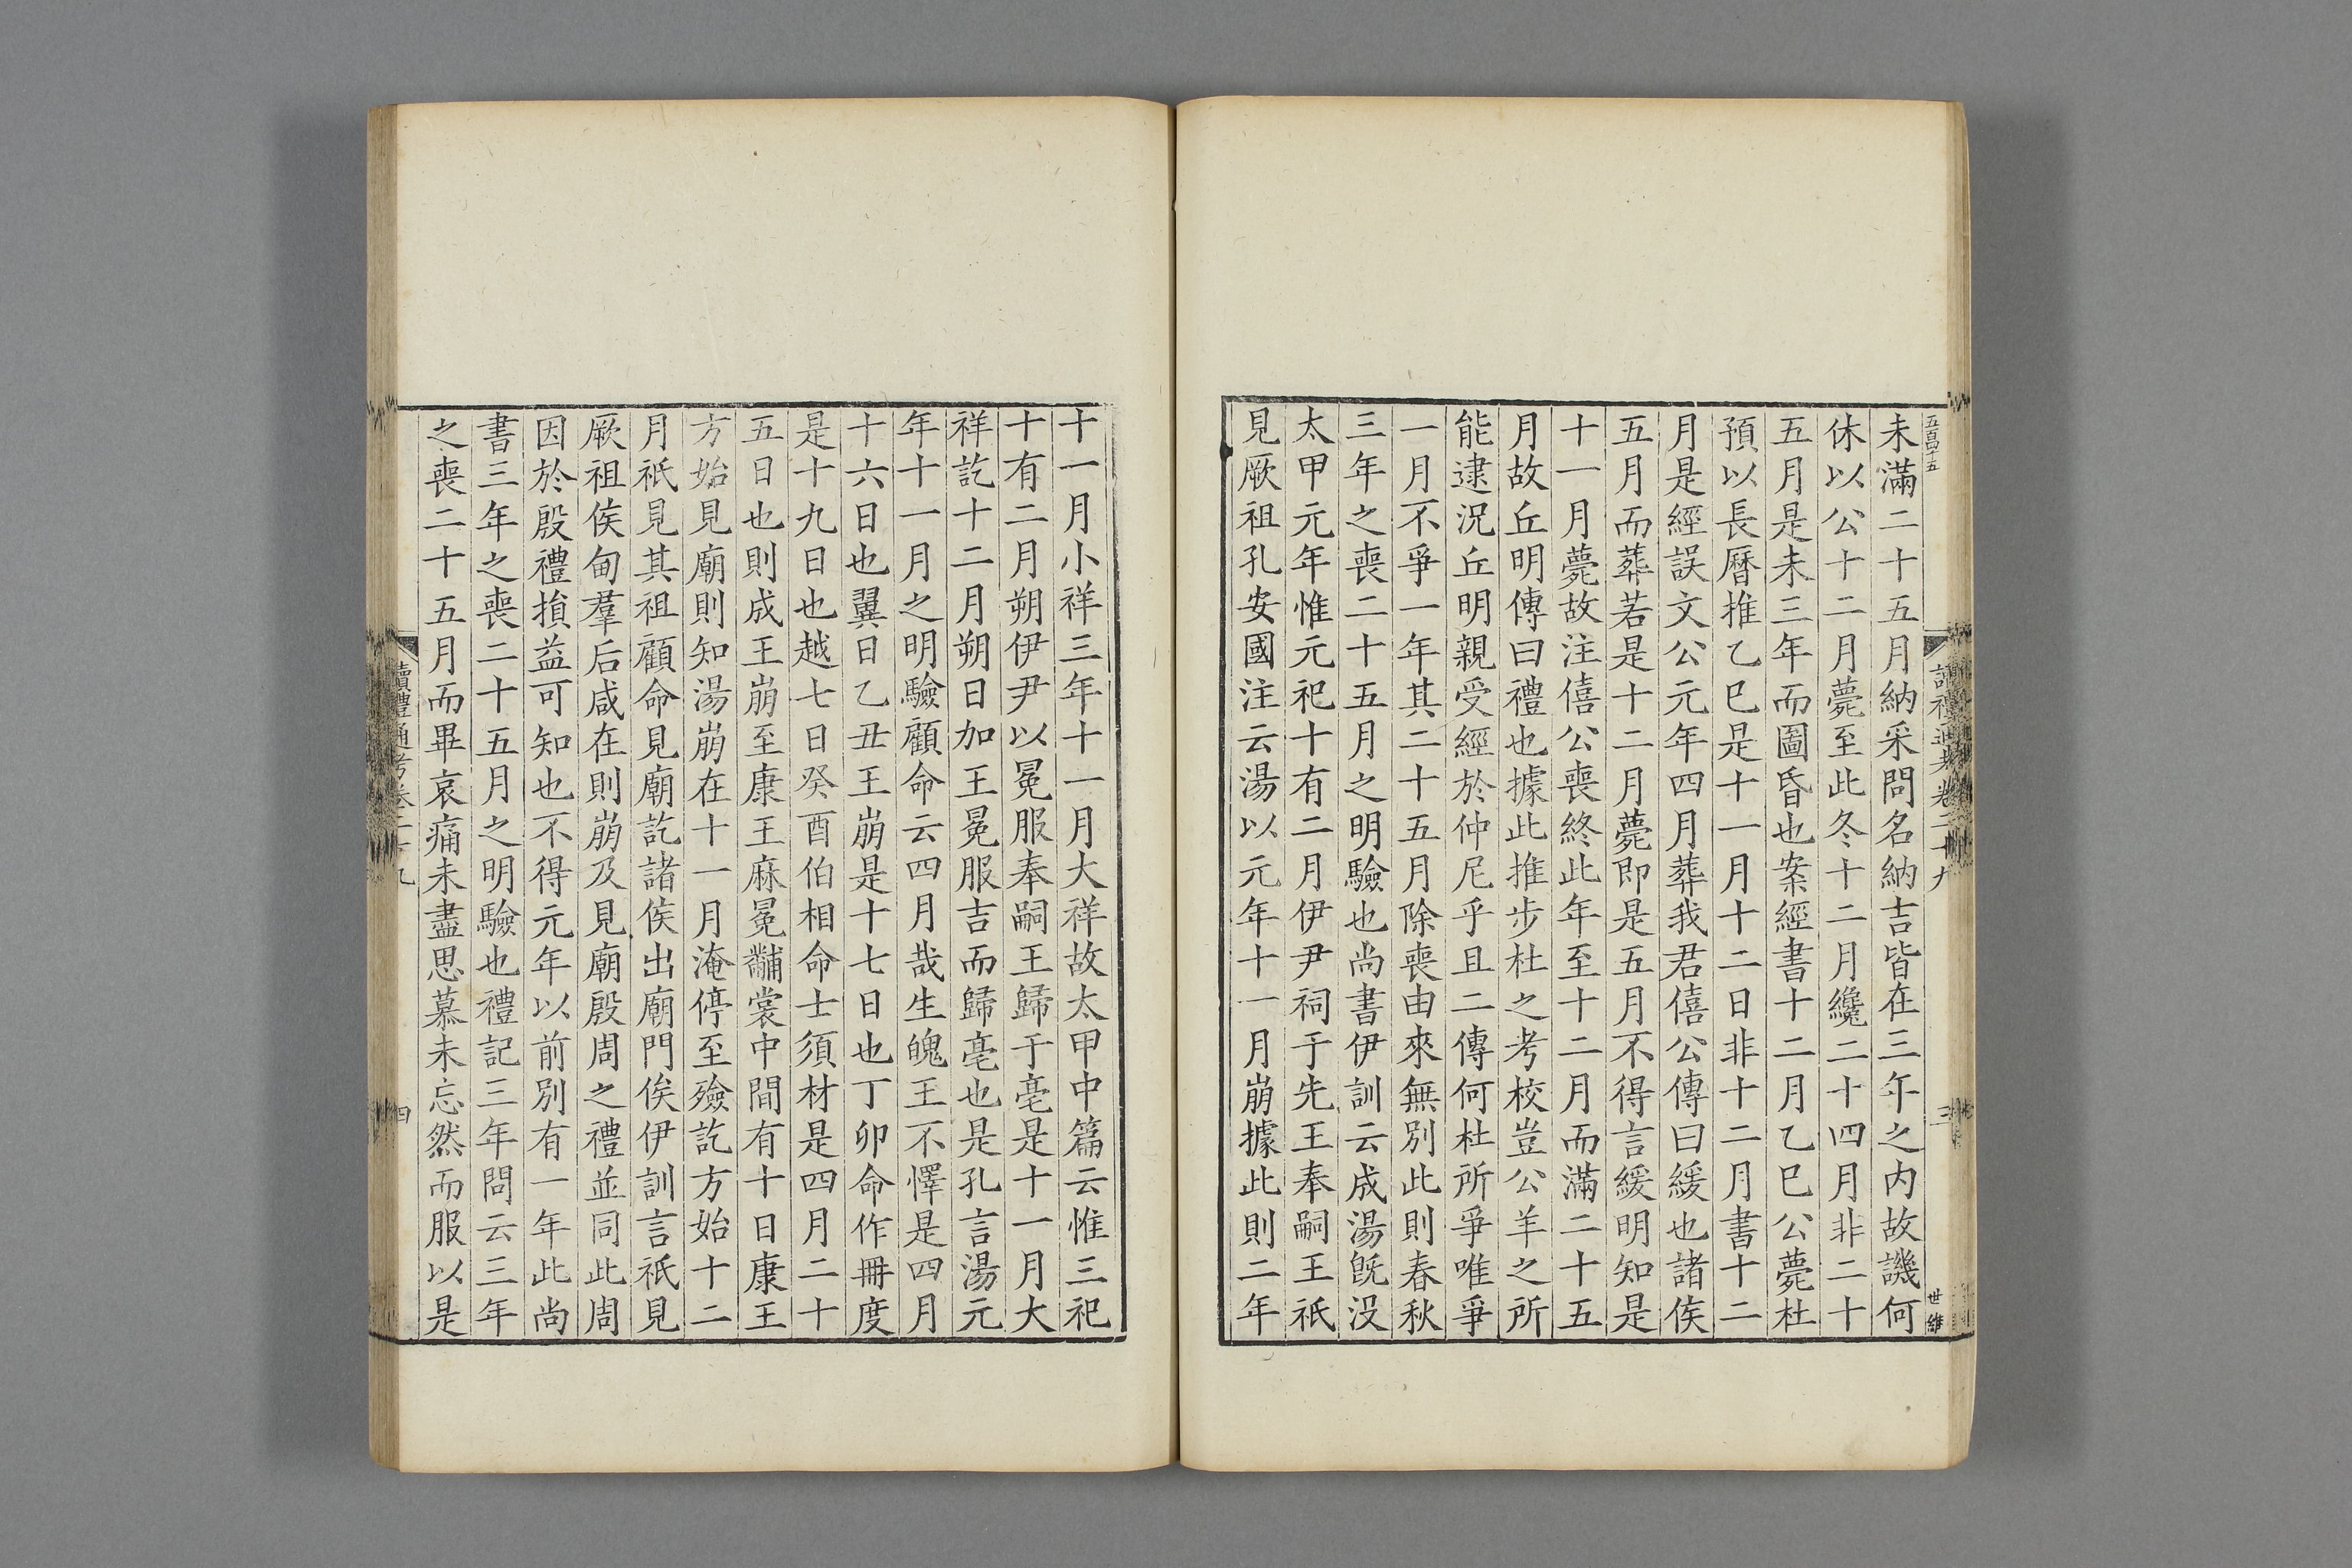 五百四十五
讀禮通考卷二十九
三
世維
未滿二十五月納采問名納吉皆在三年之内故譏何
休以公十二月薨至此冬十二月纔二十四月非二十
五月是未三年而圖昏也案經書十二月乙巳公薨杜
預以長曆推乙巳是十一月十二日非十二月書十二
月是經誤文公元年四月葬我君僖公傳曰緩也諸侯
五月而葬若是十二月薨即是五月不得言緩明知是
十一月薨故注僖公喪終此年至十二月而滿二十五
月故丘明傳曰禮也據此推步杜之考校豈公羊之所
能逮況丘明親受經於仲尼乎且二傳何杜所爭唯爭
一月不爭一年其二十五月除喪由來無別此則春秋
三年之喪二十五月之明驗也尚書伊訓云成湯旣沒
太甲元年惟元祀十有二月伊尹祠于先王奉嗣王祇
見厥祖孔安國注云湯以元年十一月崩據此則二年
十一月小祥三年十一月大祥故太甲中篇云惟三祀
十有二月朔伊尹以冕服奉嗣王歸于亳是十一月大
祥訖十二月朔日加王冕服吉而歸亳也是孔言湯元
年十一月之明驗顧命云四月哉生魄王不懌是四月
十六日也翼日乙丑王崩是十七日也丁卯命作冊度
是十九日也越七日癸酉伯相命士須材是四月二十
五日也則成王崩至康王麻冕黼裳中間有十日康王
方始見廟則知湯崩在十一月淹停至殮訖方始十二
月祇見其祖顧命見廟訖諸侯出廟門俟伊訓言祇見
厥祖侯甸羣后咸在則崩及見廟殷周之禮並同此周
因於殷禮損益可知也不得元年以前別有一年此尚
書三年之喪二十五月之明驗也禮記三年問云三年
之喪二十五月而畢哀痛未盡思慕未忘然而服以是
讀禮通考卷二十九
四